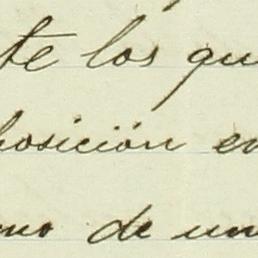 te los qu
posición en
mo de un